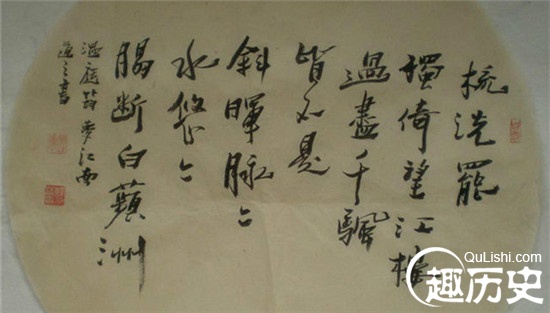 梳洗罷
獨倚望江樓
過盡千颿
皆不是
斜暉脉〻
水悠〻
腸斷白蘋洲
溫庭筠夢江南
之書
QuLishi.com
趣历史